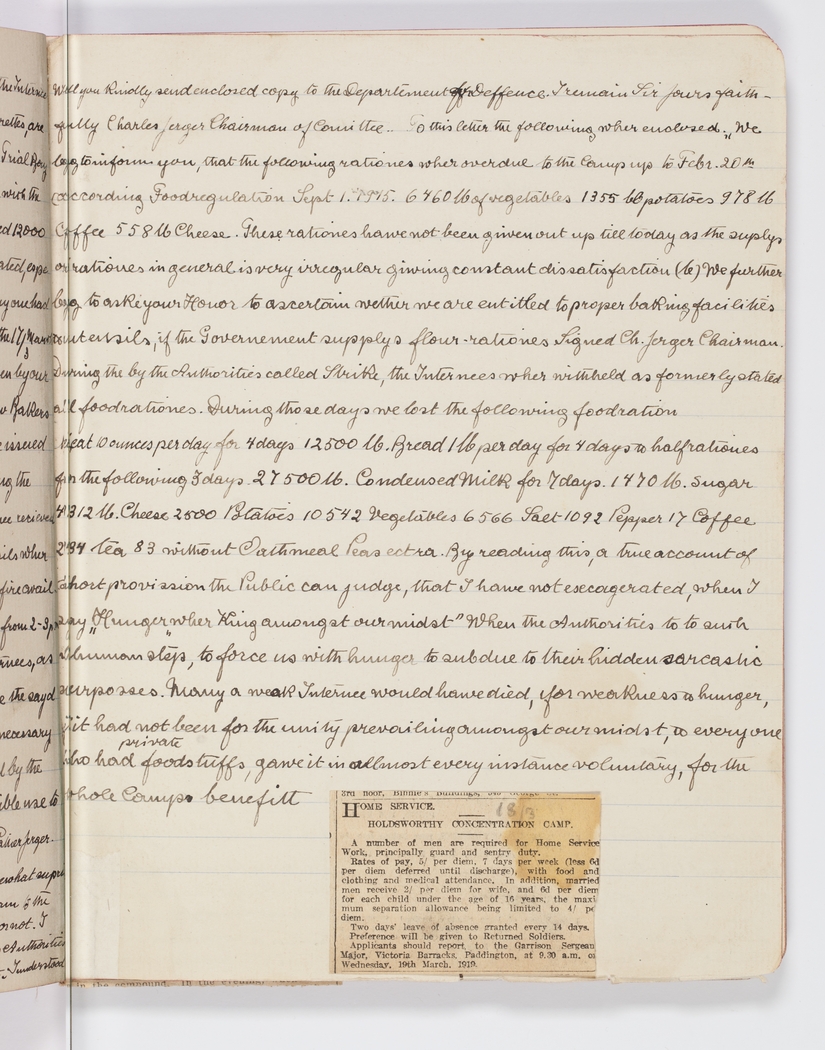 Will you kindly send enclosed copy to the Departement of Deffence. I remain Sir Jours faith-
fully Charles Jerger Chairman of Comittee.. To this letter the following wher enclosed. „We
begg to inform you, that the following rationes wher overdue to the Camp up to Febr. 20th
according Foodregulation Sept 1. 6460 lb of vegetables 1355 lb potatoes 978 lb
Coffee 558 lb Cheese. These rationes hawe not been given out up till today as the supplys
of rationes in general is very irregular giwing constant dissatisfaction (b) We further
begg to aske your Honor to ascertain wether we are entitled to proper baking facilities
utensils, if the Governement supplys flour-rationes Signed Ch. Jerger Chairman.
During the by the Authorities called Strike, the Internees wher withheld as formerly stated
all foodrationes. During those days we lost the following foodration
Meat 10 ounces per day for 4 days 12500 lb. Bread 1 lb per day for 4 days & half rationes
for the following 3 days. 27500 lb. Condensed Milk for 7 days. 1470 lb. Sugar
4312 lb. Cheese 2500 Potatoes 10542 Vegetables 6566 Salt 1092 Pepper 17 Coffee
234 tea 83 without Oathmeal Peas ect ra. By reading this, a true account of
short provission the Public can judge, that I have not execagerated, when I
say „Hunger wher King amongst our midst" When the Authorities to to such
inhuman step, to force us with hunger to subdue to their hidden sarcastic
purposses. Many a weak Internee would hawe died, for weakness & hunger,
if it had not been for the unity prevailing amongst our midst, & everyone
private
who had foodstuffs, gawe it in allmost every instance voluntary, for the
whole Camps benefitt
18/3
3rd floor,
HOME SERVICE.
HOLDSWORTHY CONCENTRATION CAMP.
A number of men are required for Home Service
Work, principally guard and sentry duty.
Rates of pay, 5/ per diem, 7 days per week (less 6d
per diem deferred until discharge), with food and
clothing and medical attendance. In addition, married
men receive 2/ per diem for wife, and 6d per diem
for each child under the age of 16 years, the maxi
mum separation allowance being limited to 4/ per
diem.
Two days' leave of absence granted every 14 days.
Preference will be given to Returned Soldiers.
Applicants should report to the Garrison Sergean
Major, Victoria Barracks, Paddington, at 9.30 a.m. on
Wednesday, 19th March, 1919.
in the compound. In the